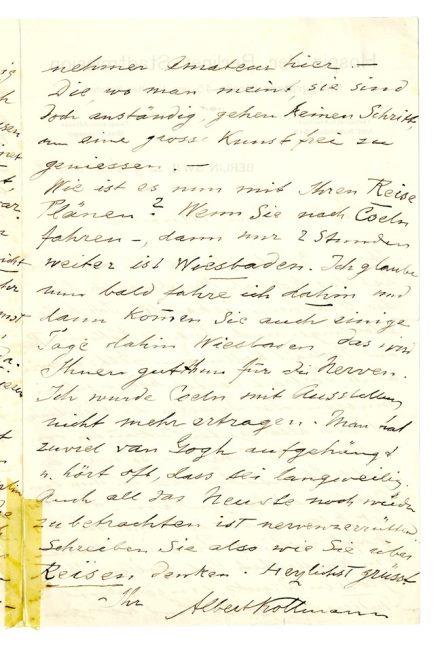 nehmer Amateur hier. —
Die, wo man meint, sie sind
doch anständig, gehen keinen Schritt,
um eine grosse Kunst frei zu
geniessen. —
Wie ist es nun mit Ihren Reise
Plänen? Wenn Sie nach Coeln
fahren –, dann nur 2 Stunden
weiter ist Wiesbaden. Ich glaube
nun bald fahre ich dahin und
dann kom̄en Sie auch einige
Tage dahin Wiesbaden, das wird
Ihnen gut thun für die Nerven.
Ich wurde Coeln mit Ausstellung
nicht mehr ertragen. Man hat
zuviel van Gogh aufgehängt
u. hört oft, dass sei langweilig.
Auch all das Neuste noch wieder
zu betrachten ist nervenzerrüttend
Schreiben Sie also wie Sie über
Reisen denken. Herzlichst grüsst
Ihr Albert Kollmann